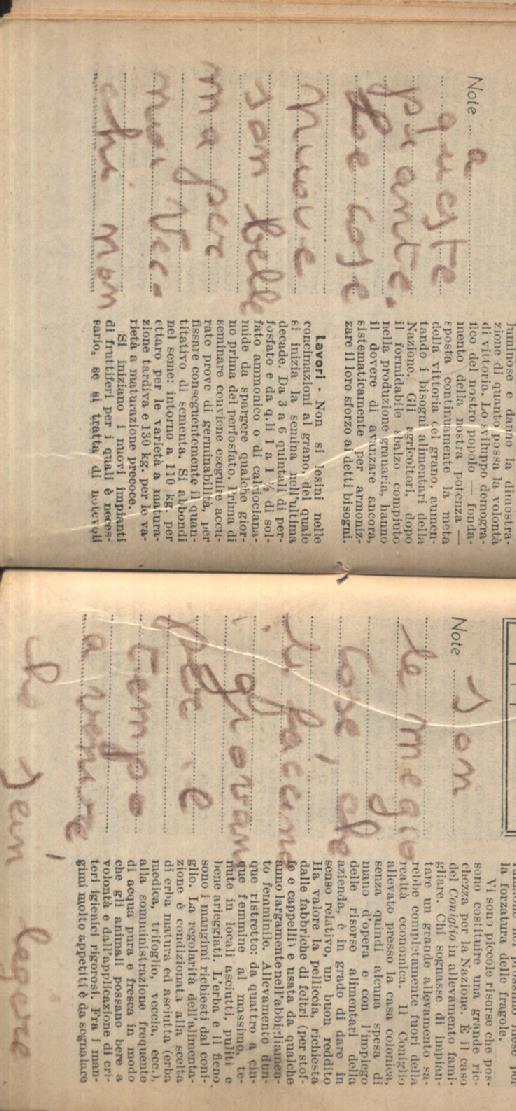 luminose e danno la dimostra-
zione di quanto possa la volontà
di vittoria. Lo sviluppo demogra-
fico del nostro popolo — fonda-
mento della nostra potenza —
sposta continuamente la meta
della vittoria del grano, aumen-
tando i bisogni alimentari della
Nazione. Gli agricoltori, dopo
il formidabile sbalzo compiuto
nella produzione granaria, hanno
il dovere di avanzare ancora,
sistematicamente per armoniz-
zare il loro sforzo a detti bisogni.
Lavori - Non si lesini nelle
concimazioni al grano, del quale
si inizia la semina nell'ultima
decade. Da 3 a 6 quintali di per-
fosfato e da q.li 1 a 1 ½ di sol-
fato ammonico o di calciociana-
mide da spargere qualche gior-
no prima del perfosfato. Prima di
seminare conviene eseguire accu-
rate prove di germinabilità, per
fissare conseguentemente il quan-
titativo di sementa. Si abbondi
nel seme: intorno a 110 kg. per
ettaro per le varietà a matura-
zione tardiva e 130 kg. per le va-
rietà a maturazione precoce.
Si iniziano i nuovi impianti
di fruttiferi per i quali è neces-
sario, se si tratta di notevoli
Note
a
queste
piante.
le cose
nuove
son belle
ma per
noi vec-
chi non
la forzatura delle fragole.
Vi sono piccole risorse che pos-
sono costituire una grande ric-
chezza per la Nazione. È il caso
del Coniglio in allevamento fami-
gliare. Chi sognasse di impian-
tare un grande allevamento sa-
rebbe completamente fuori della
realtà economica. Il Coniglio
allevato presso la casa colonica,
senza quindi alcuna spesa di
mano d'opera e con l'impiego
delle risorse alimentari della
azienda, è in grado di dare in
senso relativo, un buon reddito
Ha valore la pelliccia, richiesta
dalle fabbriche di feltri (per stof-
fe e cappelli) e usata da qualche
anno largamente nell'abbigliamen-
to femminile. Allevamento dun-
que ristretto da quattro a cin-
que femmine al massimo, te-
nute in locali asciutti, puliti e
bene arieggiati. L'erba e il fieno
sono i mangimi richiesti dal coni-
glio. La regolarità dell'alimenta-
zione è condizionata alla scelta
di erba matura ed asciutta (erba
medica, trifoglio, avena, ecc.),
alla somministrazione frequente
di acqua pura e fresca in modo
che gli animali possano bere a
volontà e dall'applicazione di cri-
teri igienici rigorosi. Fra i man-
gimi molto appetiti è da segnalare
Note
son
le meglio
cose, che
li faccino
i giovani
per il
tempo
a venire
che
legere